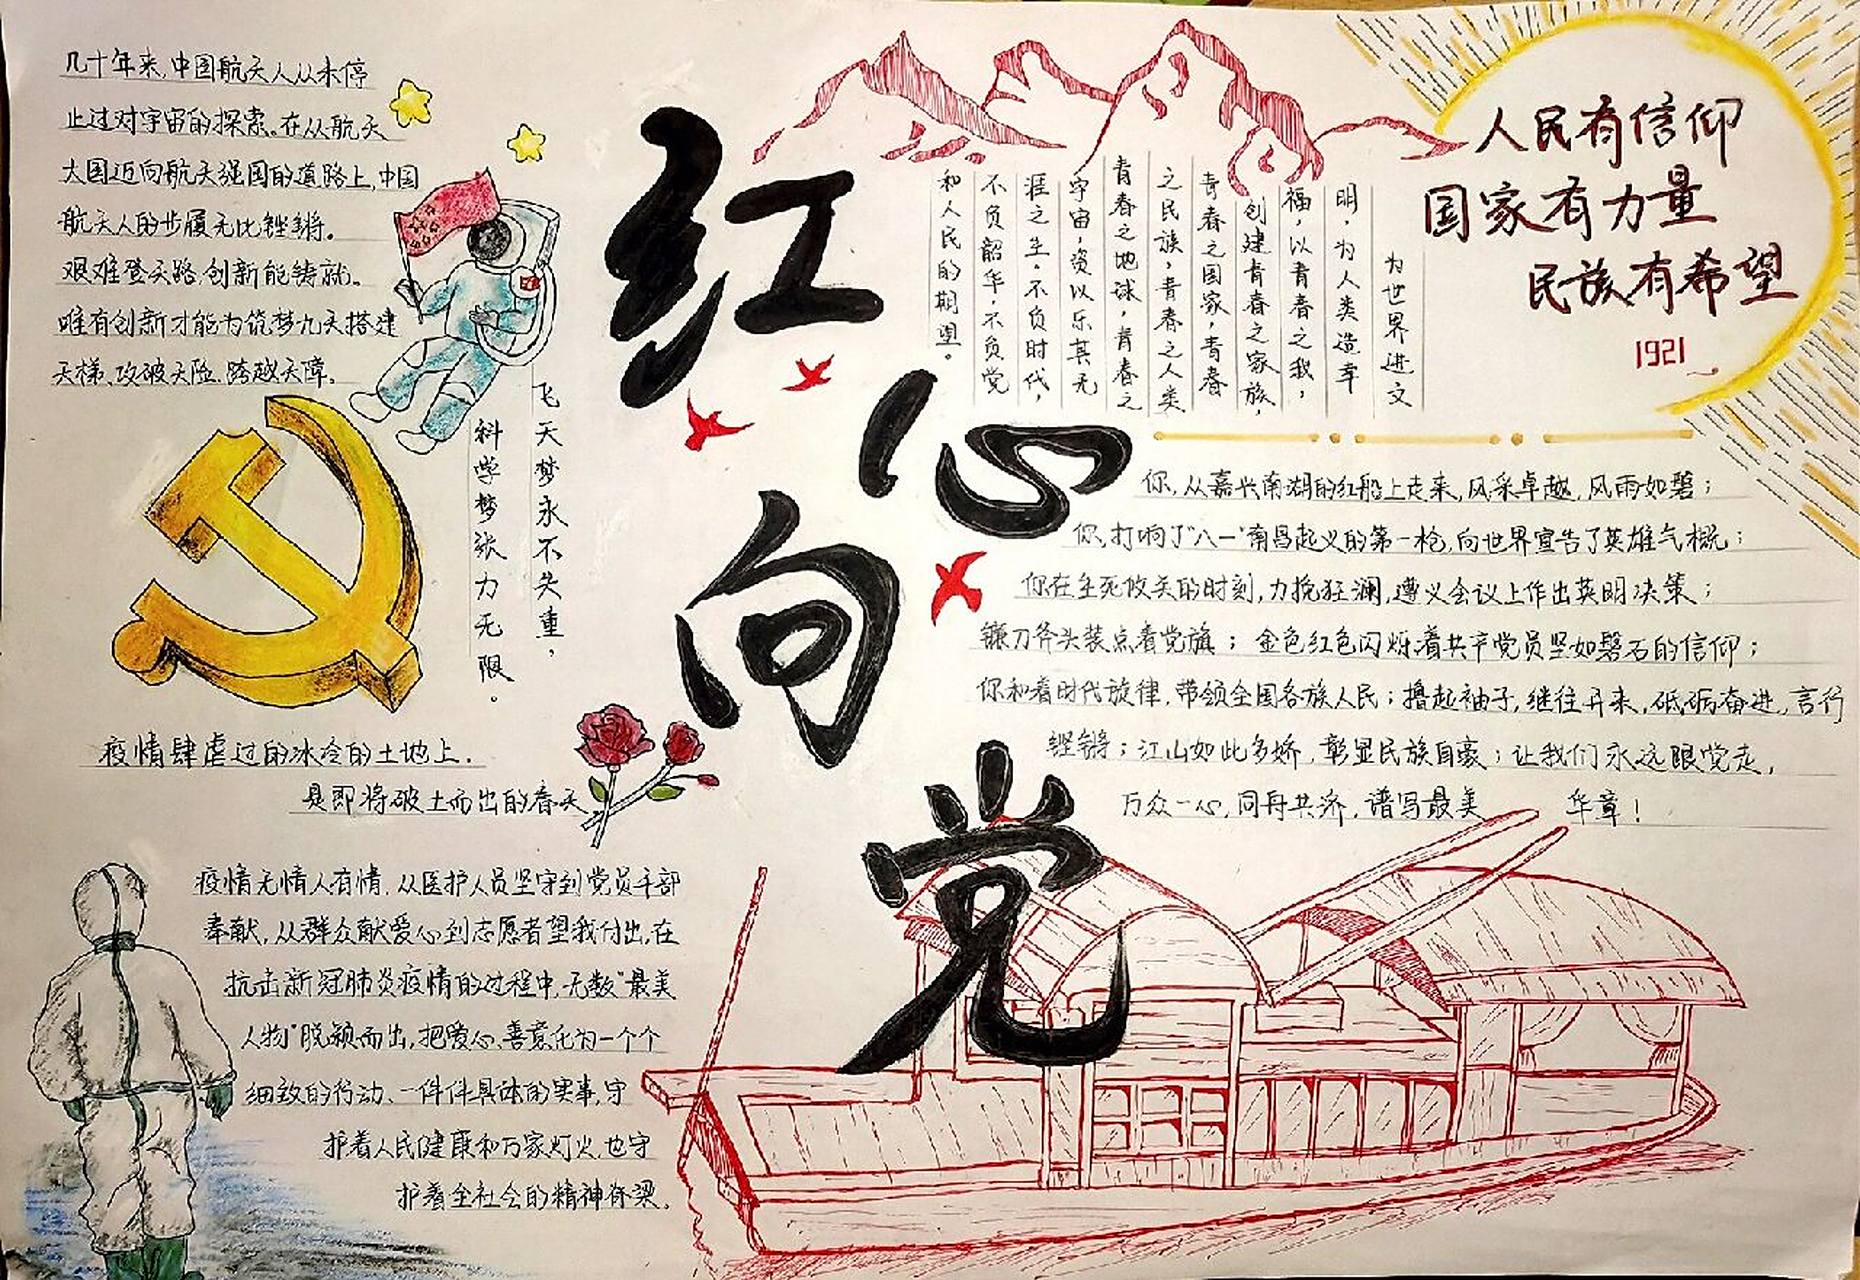 红心向党
几十年来,中国航天人从未停
止过对宇宙的探索。在从航天
大国迈向航天强国的道路上,中国
航天人的步履无比铿锵。
艰难登天路,创新能铸就。
唯有创新才能为筑梦九天搭建
天梯、攻破天险、跨越天障。
飞天梦永不失重,
科学梦张力无限。
为世界进文
明,为人类造幸
福,以青春之我,
创建青春之家族,
青春之国家,青春
之民族,青春之人类
青春之地球,青春之
宇宙,资以乐其无
涯之生。不负时代,
不负韶华,不负党
和人民的期望。
人民有信仰
国家有力量
民族有希望
1921
你,从嘉兴南湖的红船上走来,风采卓越,风雨如磐;
你,打响了"八一"南昌起义的第一枪,向世界宣告了英雄气概;
你在生死攸关的时刻,力挽狂澜,遵义会议上作出英明决策;
镰刀斧头装点着党旗;金色红色闪烁着共产党员坚如磐石的信仰;
你和着时代旋律,带领全国各族人民;撸起袖子,继往开来,砥砺奋进,言行
铿锵;江山如此多娇,彰显民族自豪;让我们永远跟党走,
万众一心,同舟共济,谱写最美 华章!
疫情肆虐过的冰冷的土地上.
是即将破土而出的春天
疫情无情人有情,从医护人员坚守到党员干部
奉献,从群众献爱心到志愿者望我付出,在
抗击新冠肺炎疫情的过程中,无数"最美
人物"脱颖而出,把爱心、善意化为一个个
细致的行动、一件件具体的实事,守
护着人民健康和万家灯火,也守
护着全社会的精神脊梁。